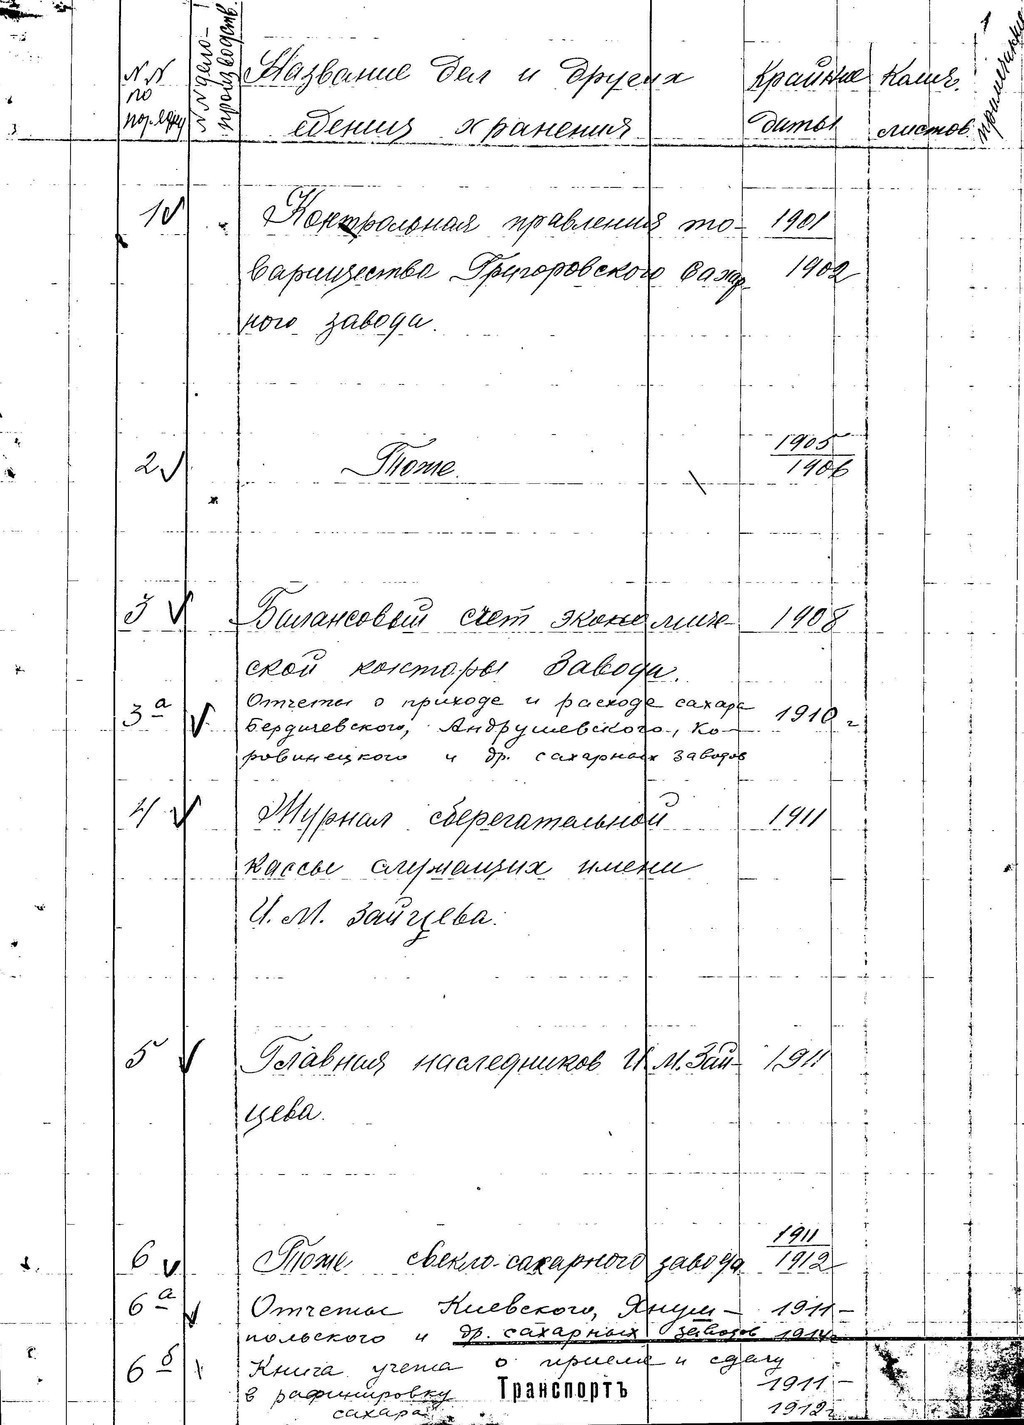 N N по порядку | N N дело-производств. | Название дел и других единиц хранения | Крайние даты | Колич. листов | примечание
1 Контрольная правления то- 1901
варищества Григоровского сахар- 1902
ного завода.
2 Тоже. 1905
1906
3 Балансовый счет экономиче- 1908
ской конторы завода.
3а Отчеты о приходе и расходе сахара 1910 г
Бердичевского, Андрушевского, Ко-
ровинецкого и др. сахарных заводов
4 Журнал сберегательной 1911
кассы служащих имени
И. М. Зайцева.
5 Главная наследников И. М. Зай- 1911
цева.
6 Тоже свекло-сахарного завода 1911
1912
6а Отчеты Киевского, Янум- 1911-
польского и др. сахарных заводов 1914г
6б Книга учета о приеме и сдачи
в рафинировку 1911-
сахара 1912г
Транспортъ